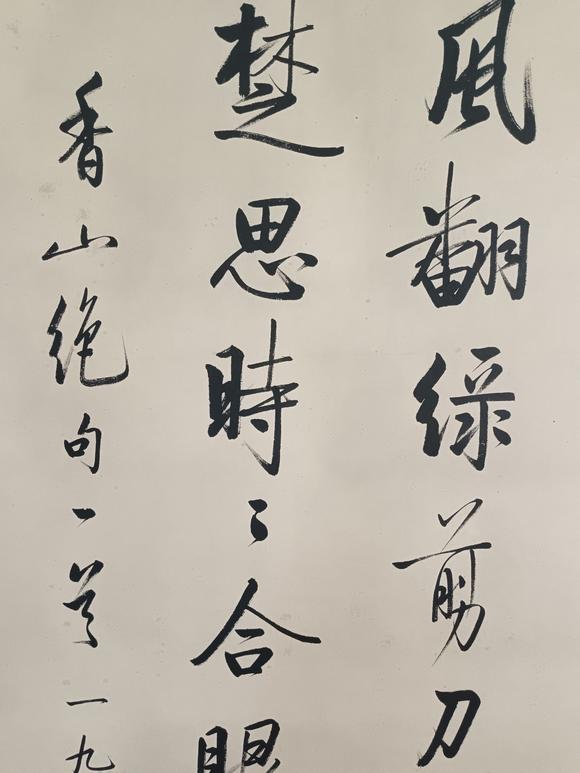 風翻綠剪刀
楚思時〻合眼
香山絕句一首一九